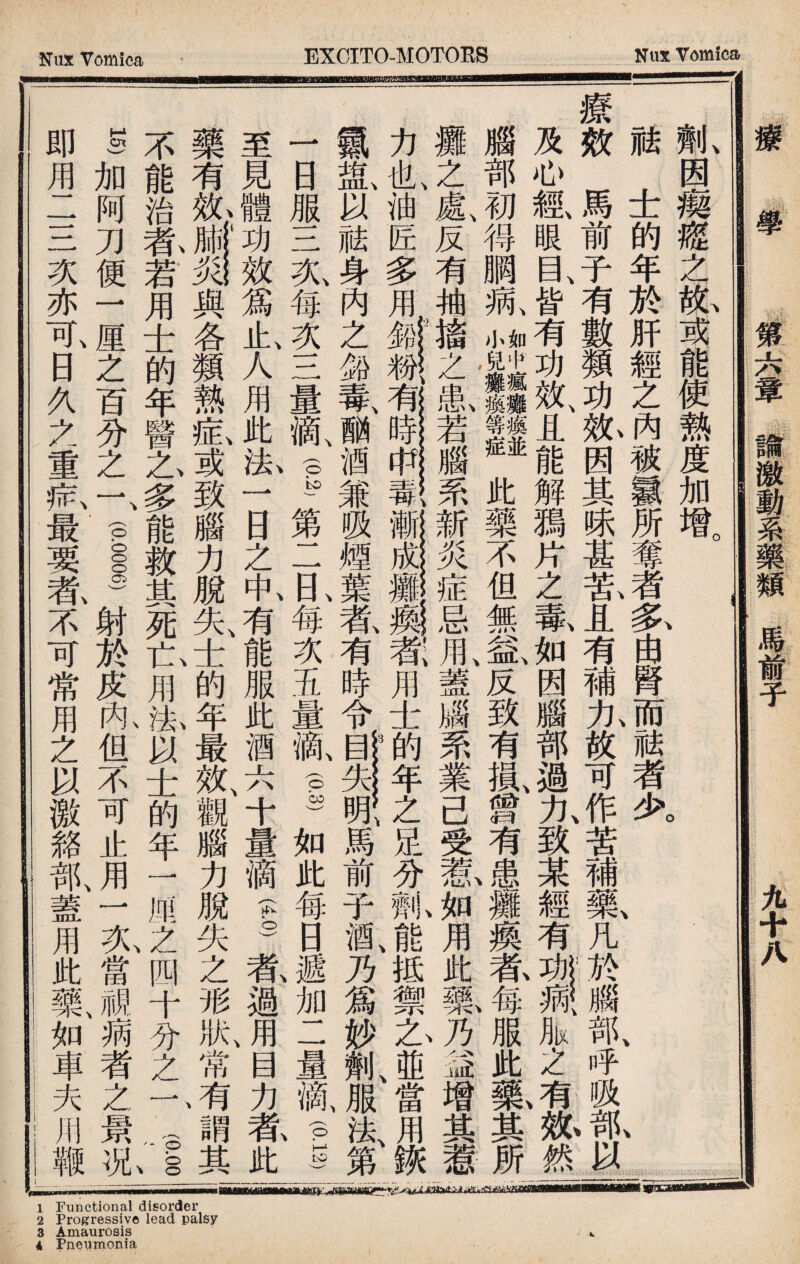 Nux Vomica EXCITO-MOTORS Nux Vomica
療學 第六章 論激動系藥類 馬前子 九十八
劑、因瘈瘲之故、或能使熱度加增。
祛 士的年於肝經之內被䨏所奪者多、由腎而祛者少。
療效 馬前子有數類功效、因其味甚苦、且有補力、故可作苦補藥、凡於腦部、呼吸部、以
及心經、眼目、皆有功效、且能解鴉片之毒、如因腦部過力、致某經有功病¹、服之有效、然
腦部初得腦病、如中瘋癱瘓並小兒癱瘓等症 此藥不但無益、反致有損、曾有患癱瘓者、每服此藥、其所
癱之處、反有抽搐之患、若腦系新炎症忌用、蓋腦系業已受惹、如用此藥、乃益增其惹
力也、油匠多用鉛粉²有時中毒、漸成癱瘓者、用士的年之足分劑、能抵禦之、並當用鉃
䨏鹽、以祛身內之鉛毒、酗酒兼吸煙葉者、有時令目失明³、馬前子酒、乃爲妙劑、服法、第
一日服三次、每次三量滴、(0.2) 第二日、每次五量滴、(0.3) 如此每日遞加二量滴、(0.12)
至見體功效爲止、人用此法、一日之中、有能服此酒六十量滴 (4.0) 者、過用目力者、此
藥有效、肺炎⁴與各類熱症、或致腦力脫失、士的年最效、觀腦力脫失之形狀、常有謂其
不能治者、若用士的年醫之、多能救其死亡、用法、以士的年一厘之四十分之一、(0.00
15) 加阿刀便一厘之百分之一、(0.0006) 射於皮內、但不可止用一次、當視病者之景况、
即用二三次亦可、日久之重症、最要者、不可常用之以激絡部、蓋用此藥、如車夫用鞭
1 Functional disorder
2 Progressive lead palsy
3 Amaurosis
4 Pneumonia